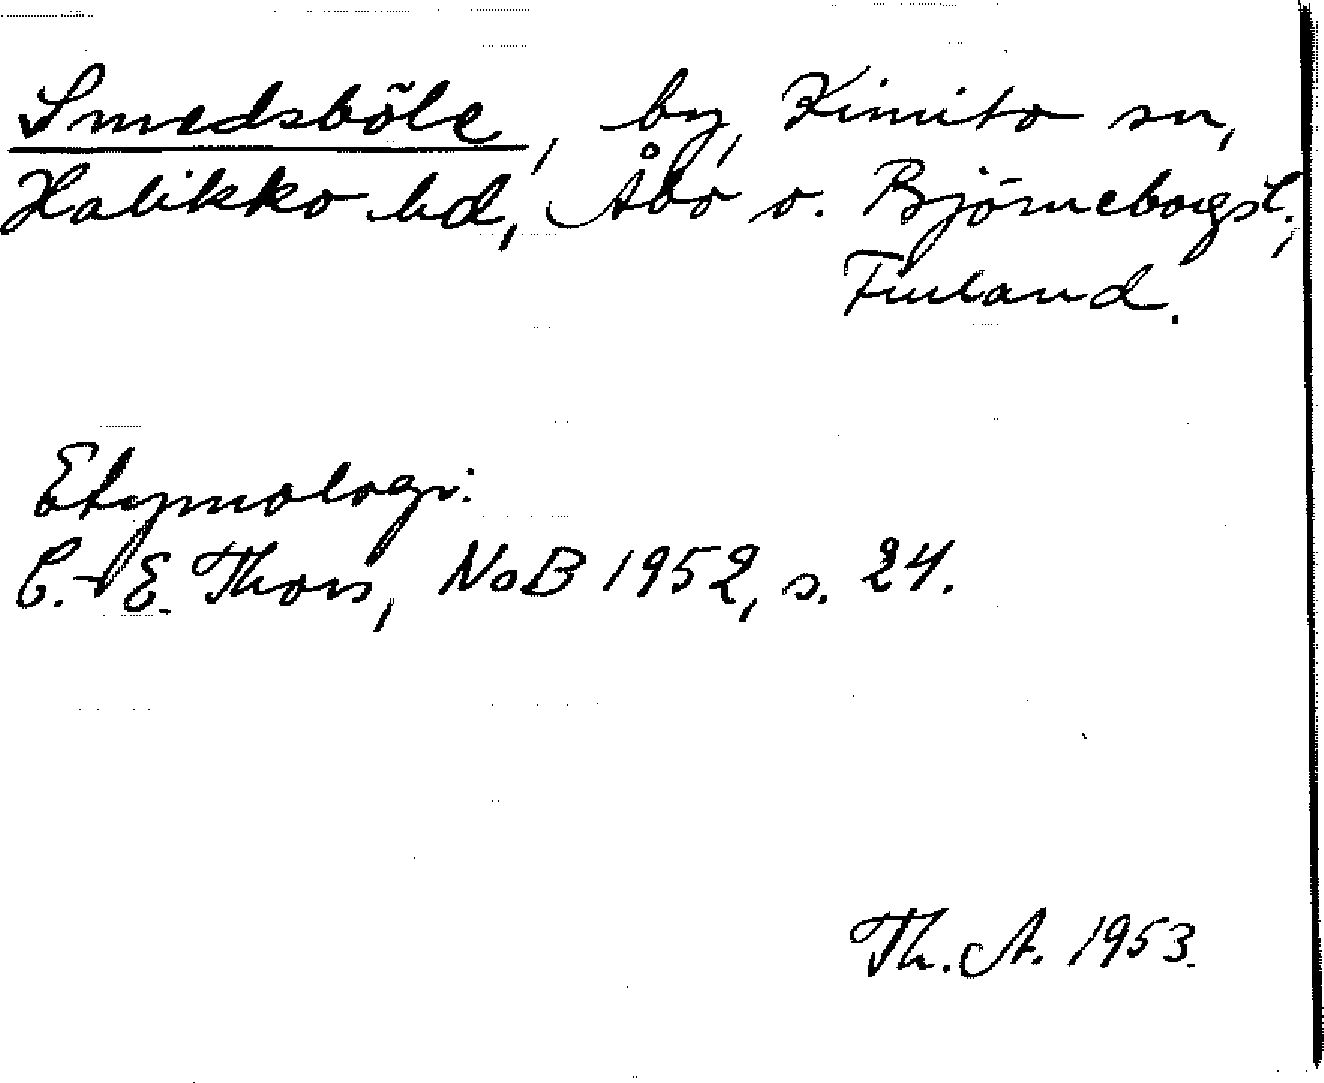 Smedsböle, by, Kimito sn,
Halikko hd, Åbo o. Björneborgs l.,
Finland.
Etymologi:
C.-E. Thors, NoB 1952, s. 24.
Th. A. 1953.